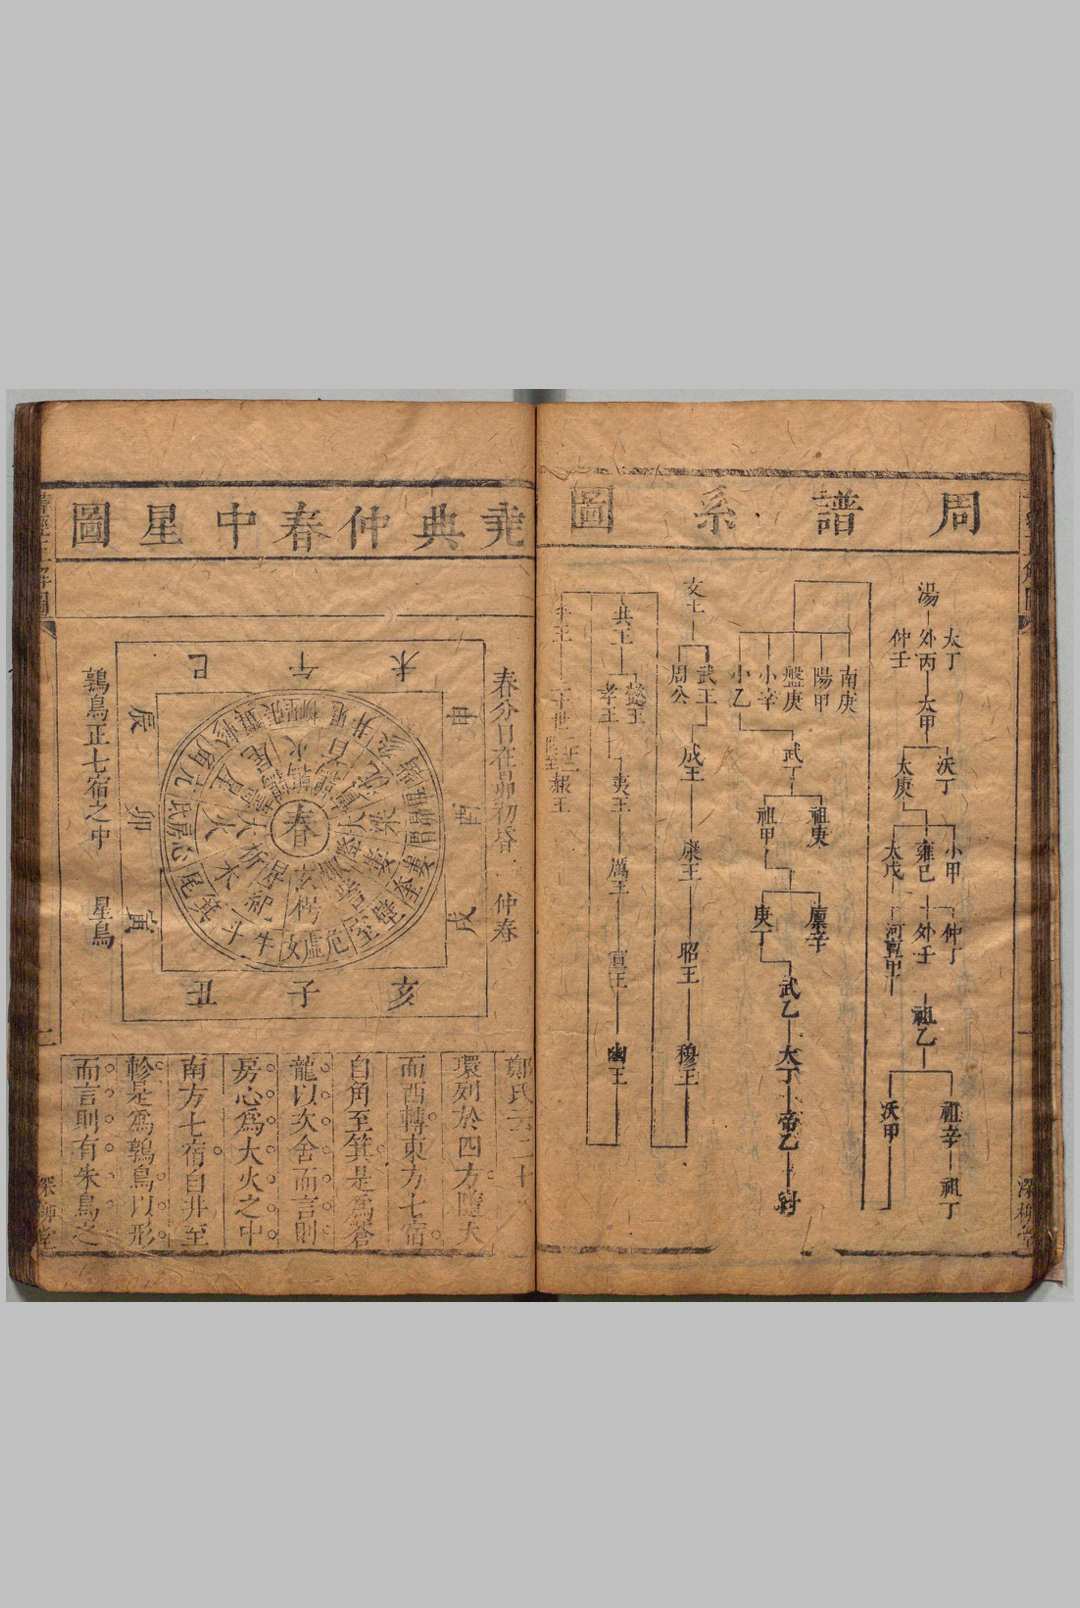 周譜系圖
湯
太丁
外丙
仲壬
太甲
沃丁
太庚
小甲
雍己
太戊
仲丁
外壬
河亶甲
祖乙
祖辛
沃甲
祖丁
南庚
陽甲
盤庚
小辛
小乙
武丁
祖庚
祖甲
廩辛
庚丁
武乙
太丁
帝乙
紂
文王
武王
周公
成王
康王
昭王
穆王
共王
懿王
孝王
夷王
厲王
宣王
幽王
平王
赧王
堯典仲春中星圖
春分日在昴初昏
仲春
未
午
巳
申
酉
戌
辰
卯
寅
亥
子
丑
春
鶉鳥正七宿之中
星鳥
環列於四方隨天
而西轉東方七宿
自角至箕是爲蒼
龍以次舍而言則
房心爲大火之中
南方七宿自井至
軫是爲鶉鳥以形
而言則有朱鳥之
深柳堂